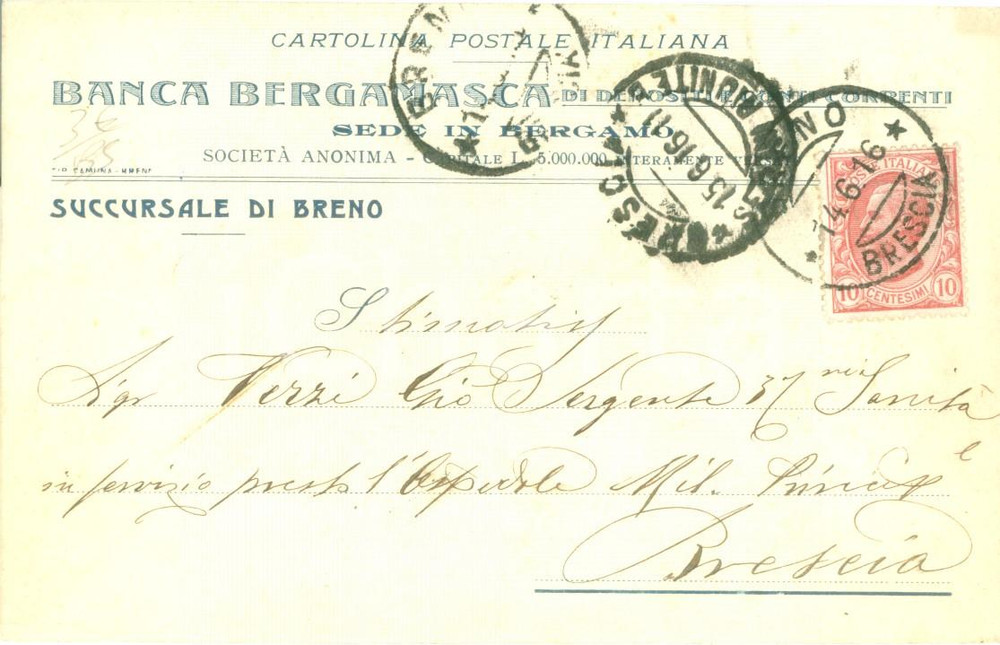 CARTOLINA POSTALE ITALIANA
BANCA BERGAMASCA DI DEPOSITI E CONTI CORRENTI
SEDE IN BERGAMO
SOCIETÀ ANONIMA - CAPITALE L. 5.000.000 INTERAMENTE VERSATO
TIP. CAMUNA - BRENO
SUCCURSALE DI BRENO
BRENO
BRESCIA
15.6.16
14.6.16
BRESCIA
POSTE ITALIANE
10 CENTESIMI 10
Sigr Verzi Gio Sergente 37 Sanità
in servizio presso l'Ospedale Mil.
Brescia